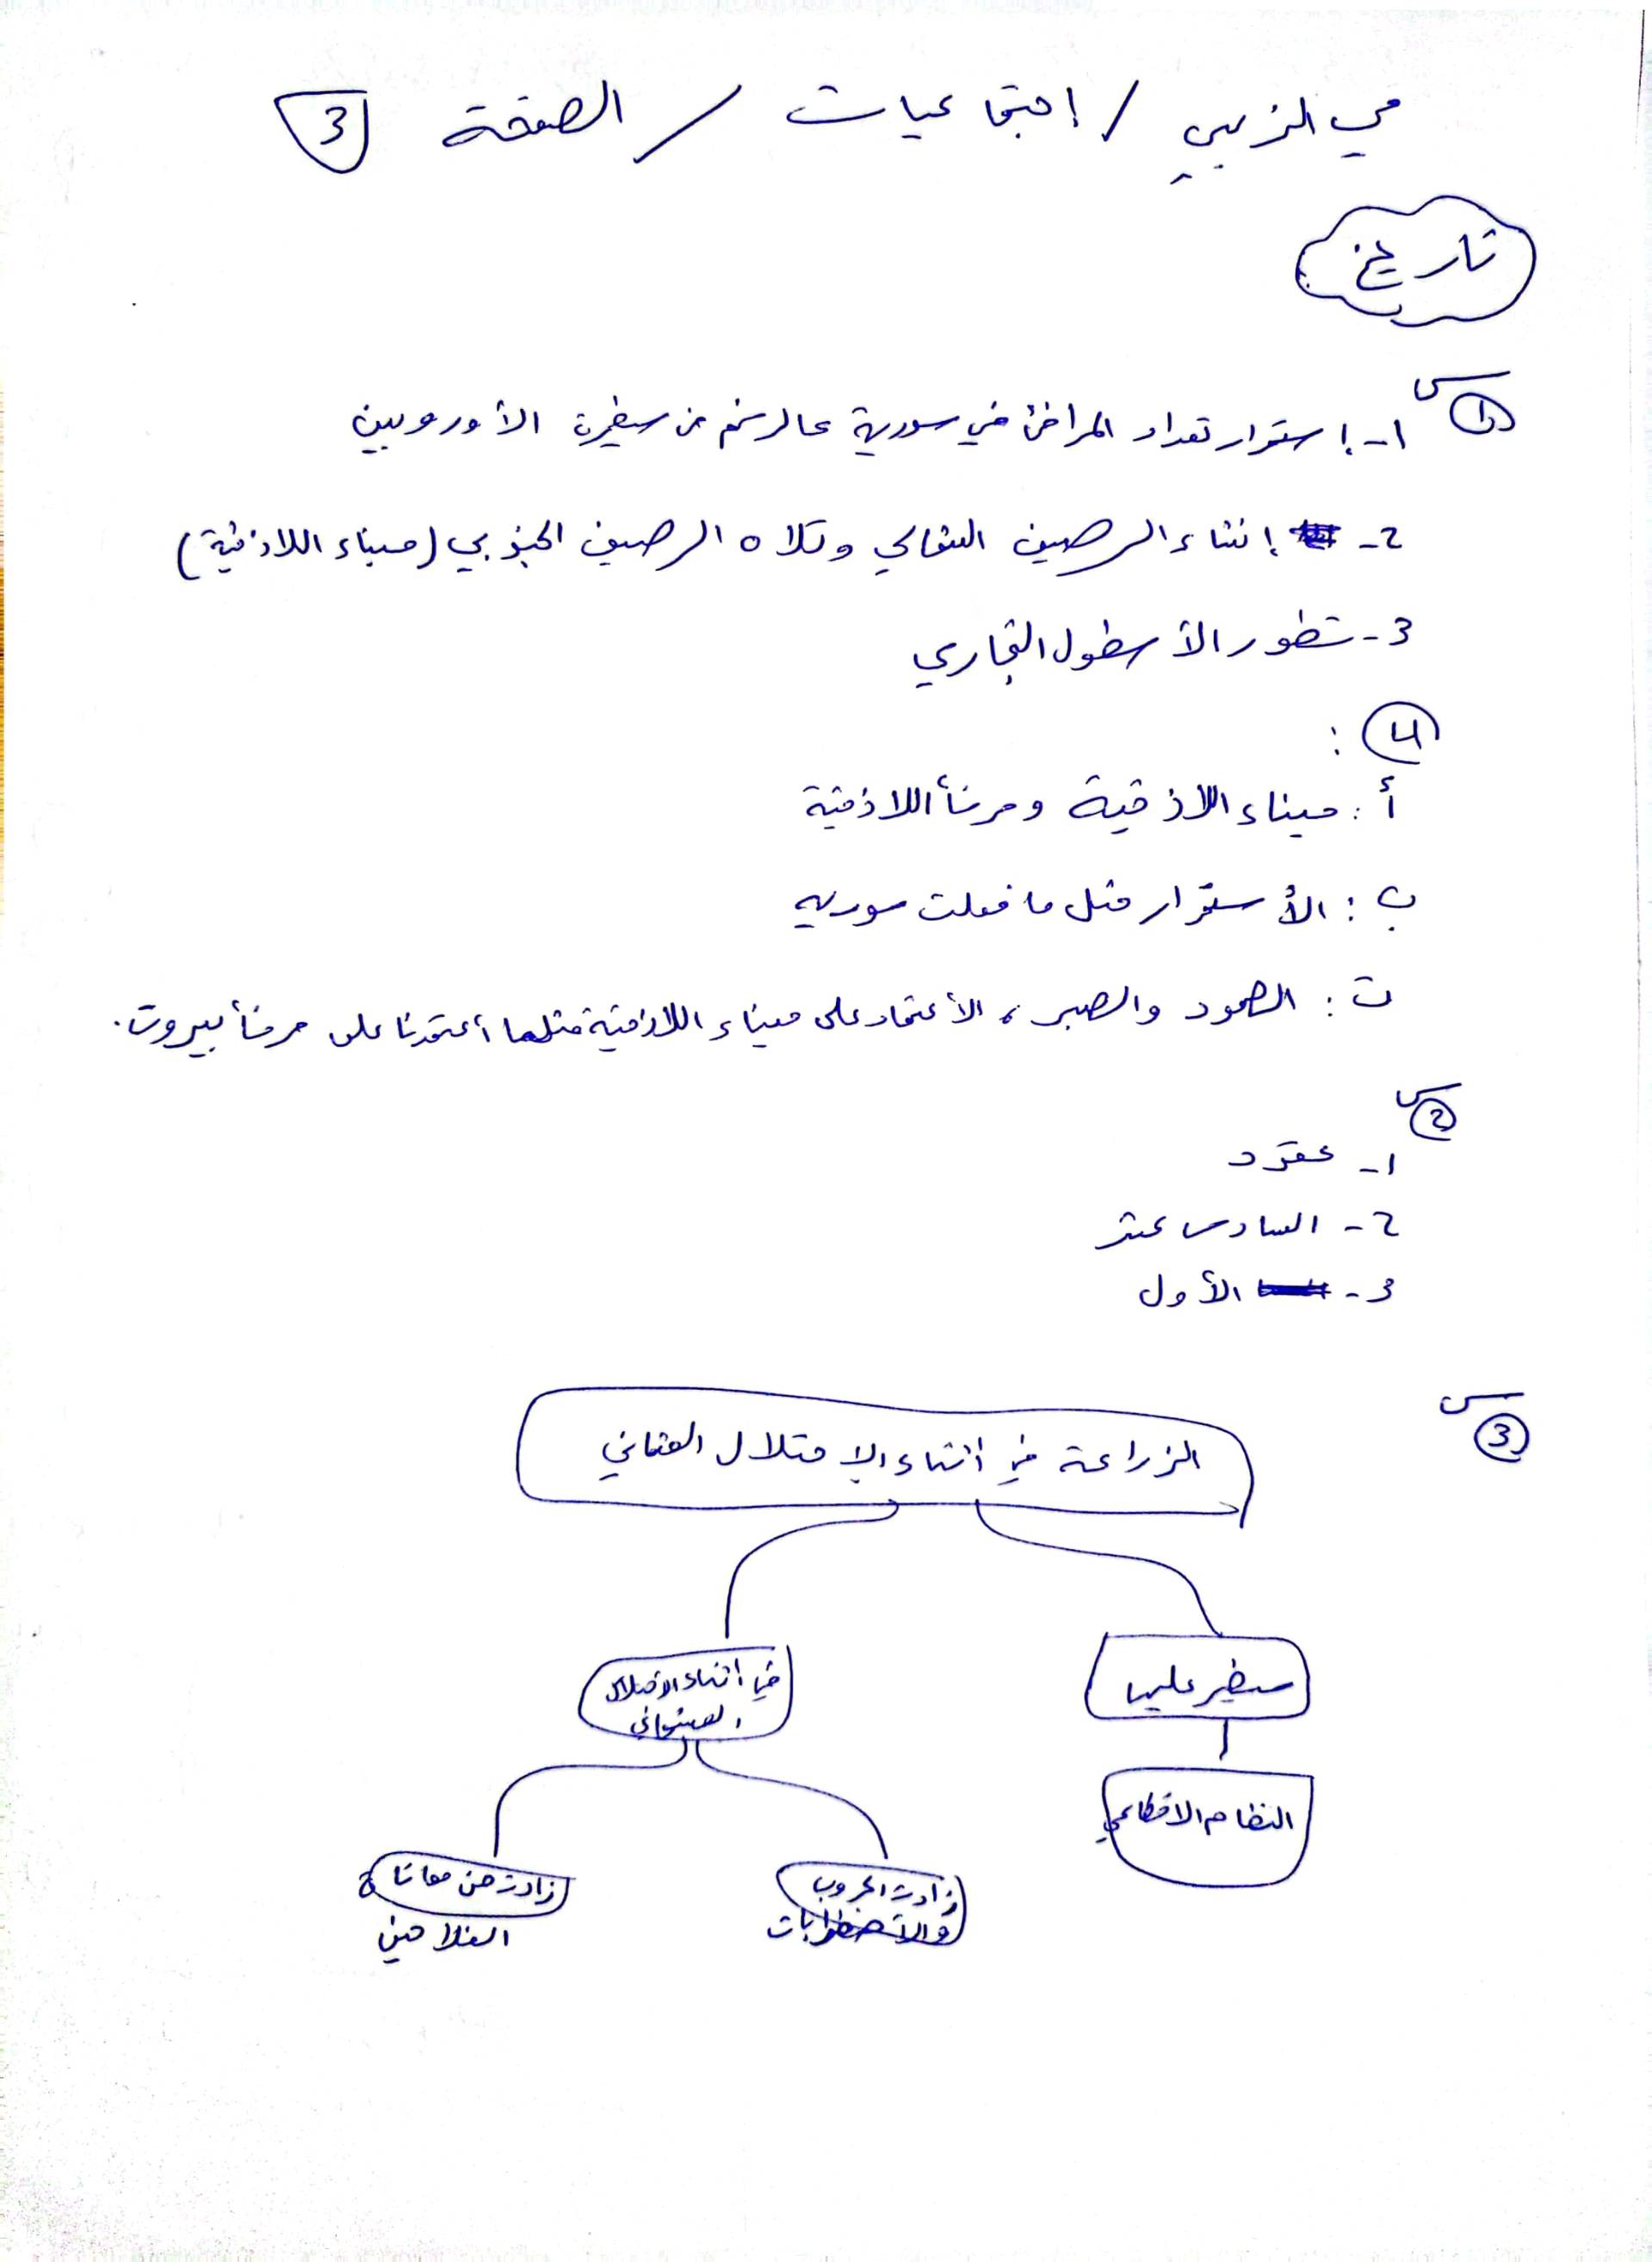 مي الزعبي / إجتماعيات / الصفحة 3
تاريخ
س1
1- إستمرار تعداد المرافئ في سورية عالرغم من سيطرة الأوروبيين
2- إنشاء الرصيف الشمالي وتلاه الرصيف الجنوبي (ميناء اللاذقية)
3- تطور الأسطول التجاري
4 :
أ : ميناء اللاذقية ومرفأ اللاذقية
ب : الأستمرار مثل ما فعلت سورية
ت : الصمود والصبر ، الأعتماد على ميناء اللاذقية مثلما أعتمدنا على مرفأ بيروت.
س2
1- عقود
2- السادس عشر
3- الأول
س3
الزراعة في أثناء الاحتلال العثماني
سيطر عليها
في أثناء الاحتلال
العثماني
النظام الاقطاعي
زادت الحروب
والاضطرابات
زادت من معاناة
الفلاحين